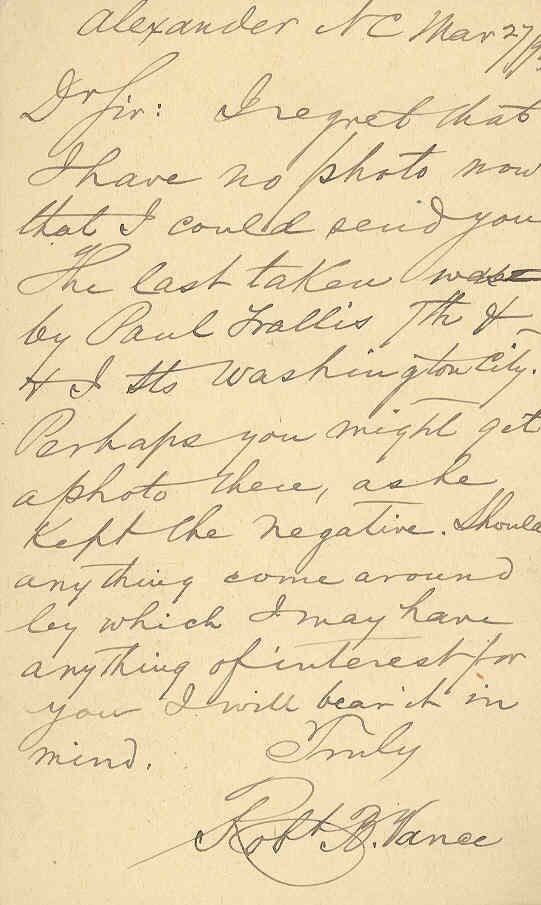 Alexander NC Mar 27/
Dr Sir: I regret that
I have no photo now
that I could send you
The last taken was
by Paul 7th &
& I Sts Washington City.
Perhaps you might get
a photo there, as he
kept the negative. Should
anything come around
by which I may have
anything of interest for
you I will bear it in
mind. Truly
Robt B. Vance